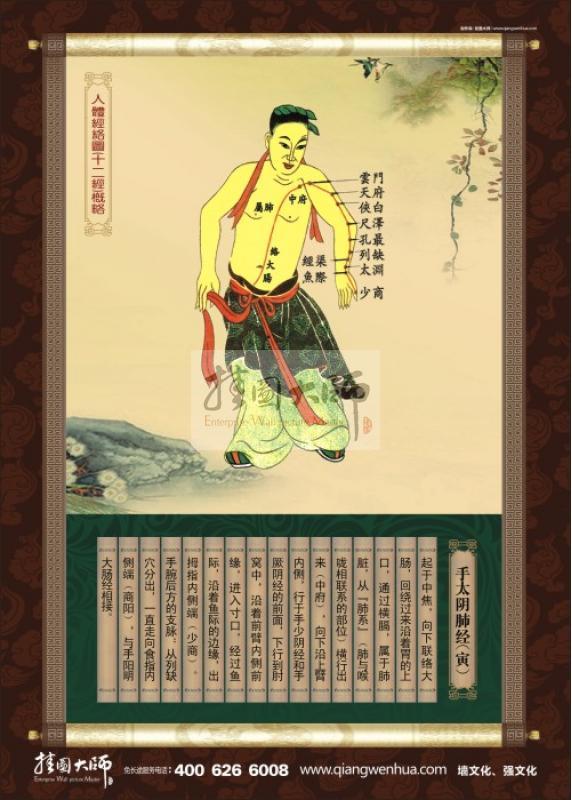 挂图大师 www.qiangwenhua.com
人體經絡圖十二經概略
雲門
天府
俠白
尺澤
孔最
列缺
經渠
太淵
魚際
少商
中府
屬肺
絡大腸
挂图大师
Enterprise Wall picture Master
手太阴肺经(寅)
起于中焦，向下联络大
肠，回绕过来沿着胃的上
口，通过横膈，属于肺
脏，从“肺系”(肺与喉
咙相联系的部位)横行出
来(中府)，向下沿上臂
内侧，行于手少阴经和手
厥阴经的前面，下行到肘
窝中，沿着前臂内侧前
缘，进入寸口，经过鱼
际，沿着鱼际的边缘，出
拇指内侧端(少商)。
手腕后方的支脉：从列缺
穴分出，一直走向食指内
侧端(商阳)，与手阳明
大肠经相接。
挂图大师
Enterprise Wall picture Master
免长途服务电话：400 626 6008 www.qiangwenhua.com 墙文化、强文化